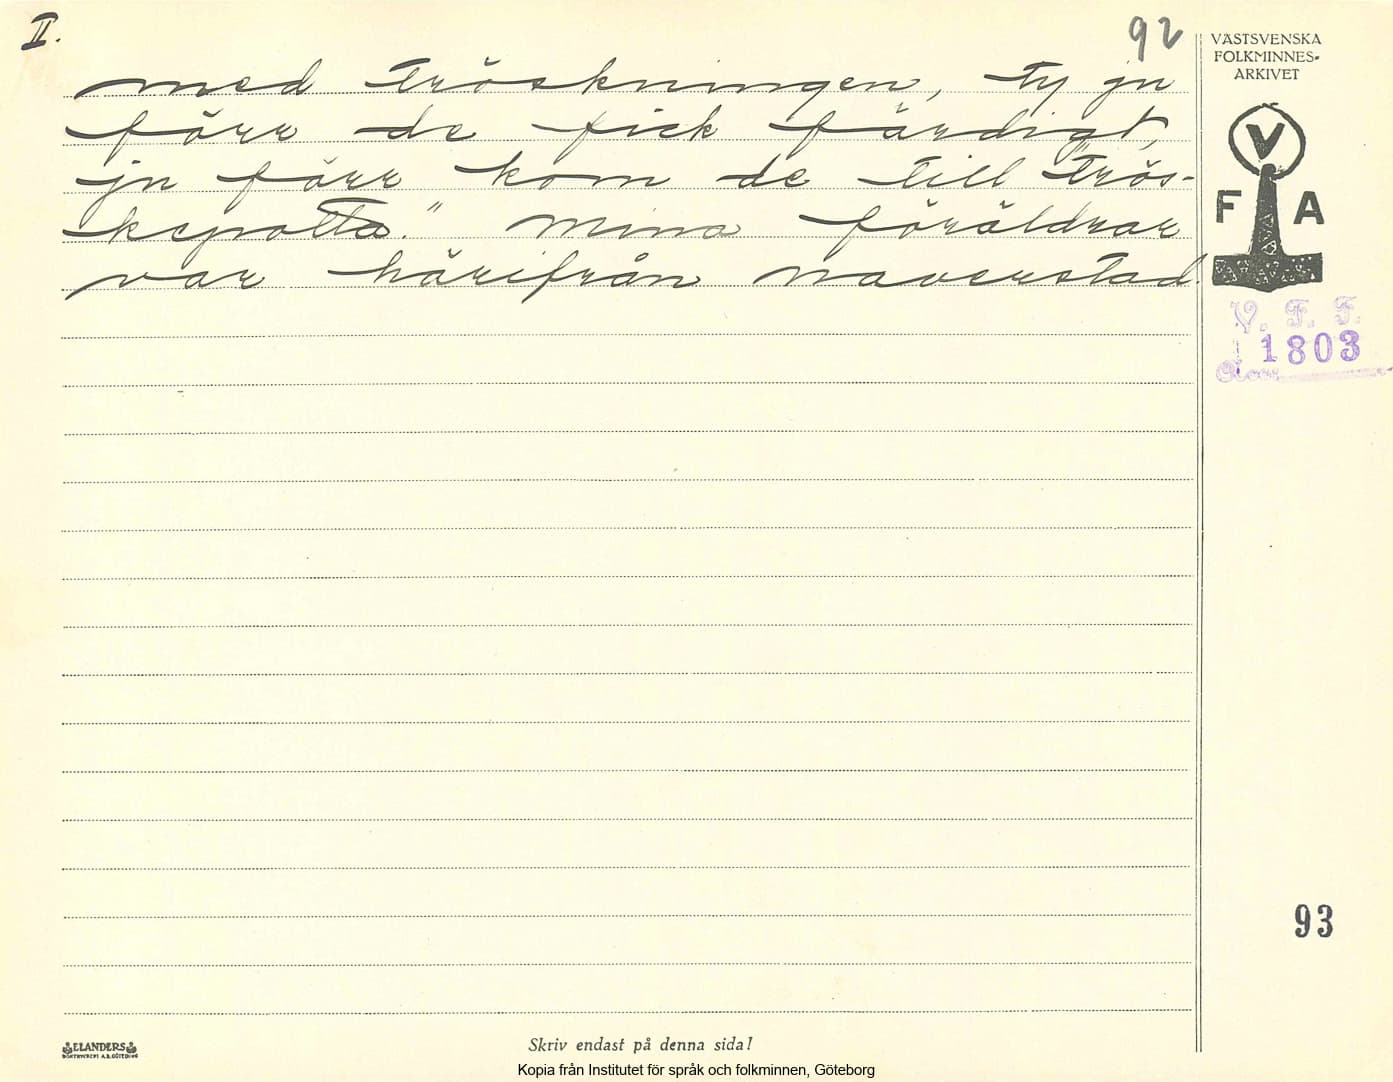 II.
92
med tröskningen, ty ju
förr de fick färdigt,
ju förr kom de till "trös-
kepotta." Mina föräldrar
var härifrån Naverstad.
VÄSTSVENSKA
FOLKMINNES-
ARKIVET
V
F A
V. F. F.
1803
Acc.
93
ELANDERS
BOKTRYCKERI A.B. GÖTEBORG
Skriv endast på denna sida!
Kopia från Institutet för språk och folkminnen, Göteborg